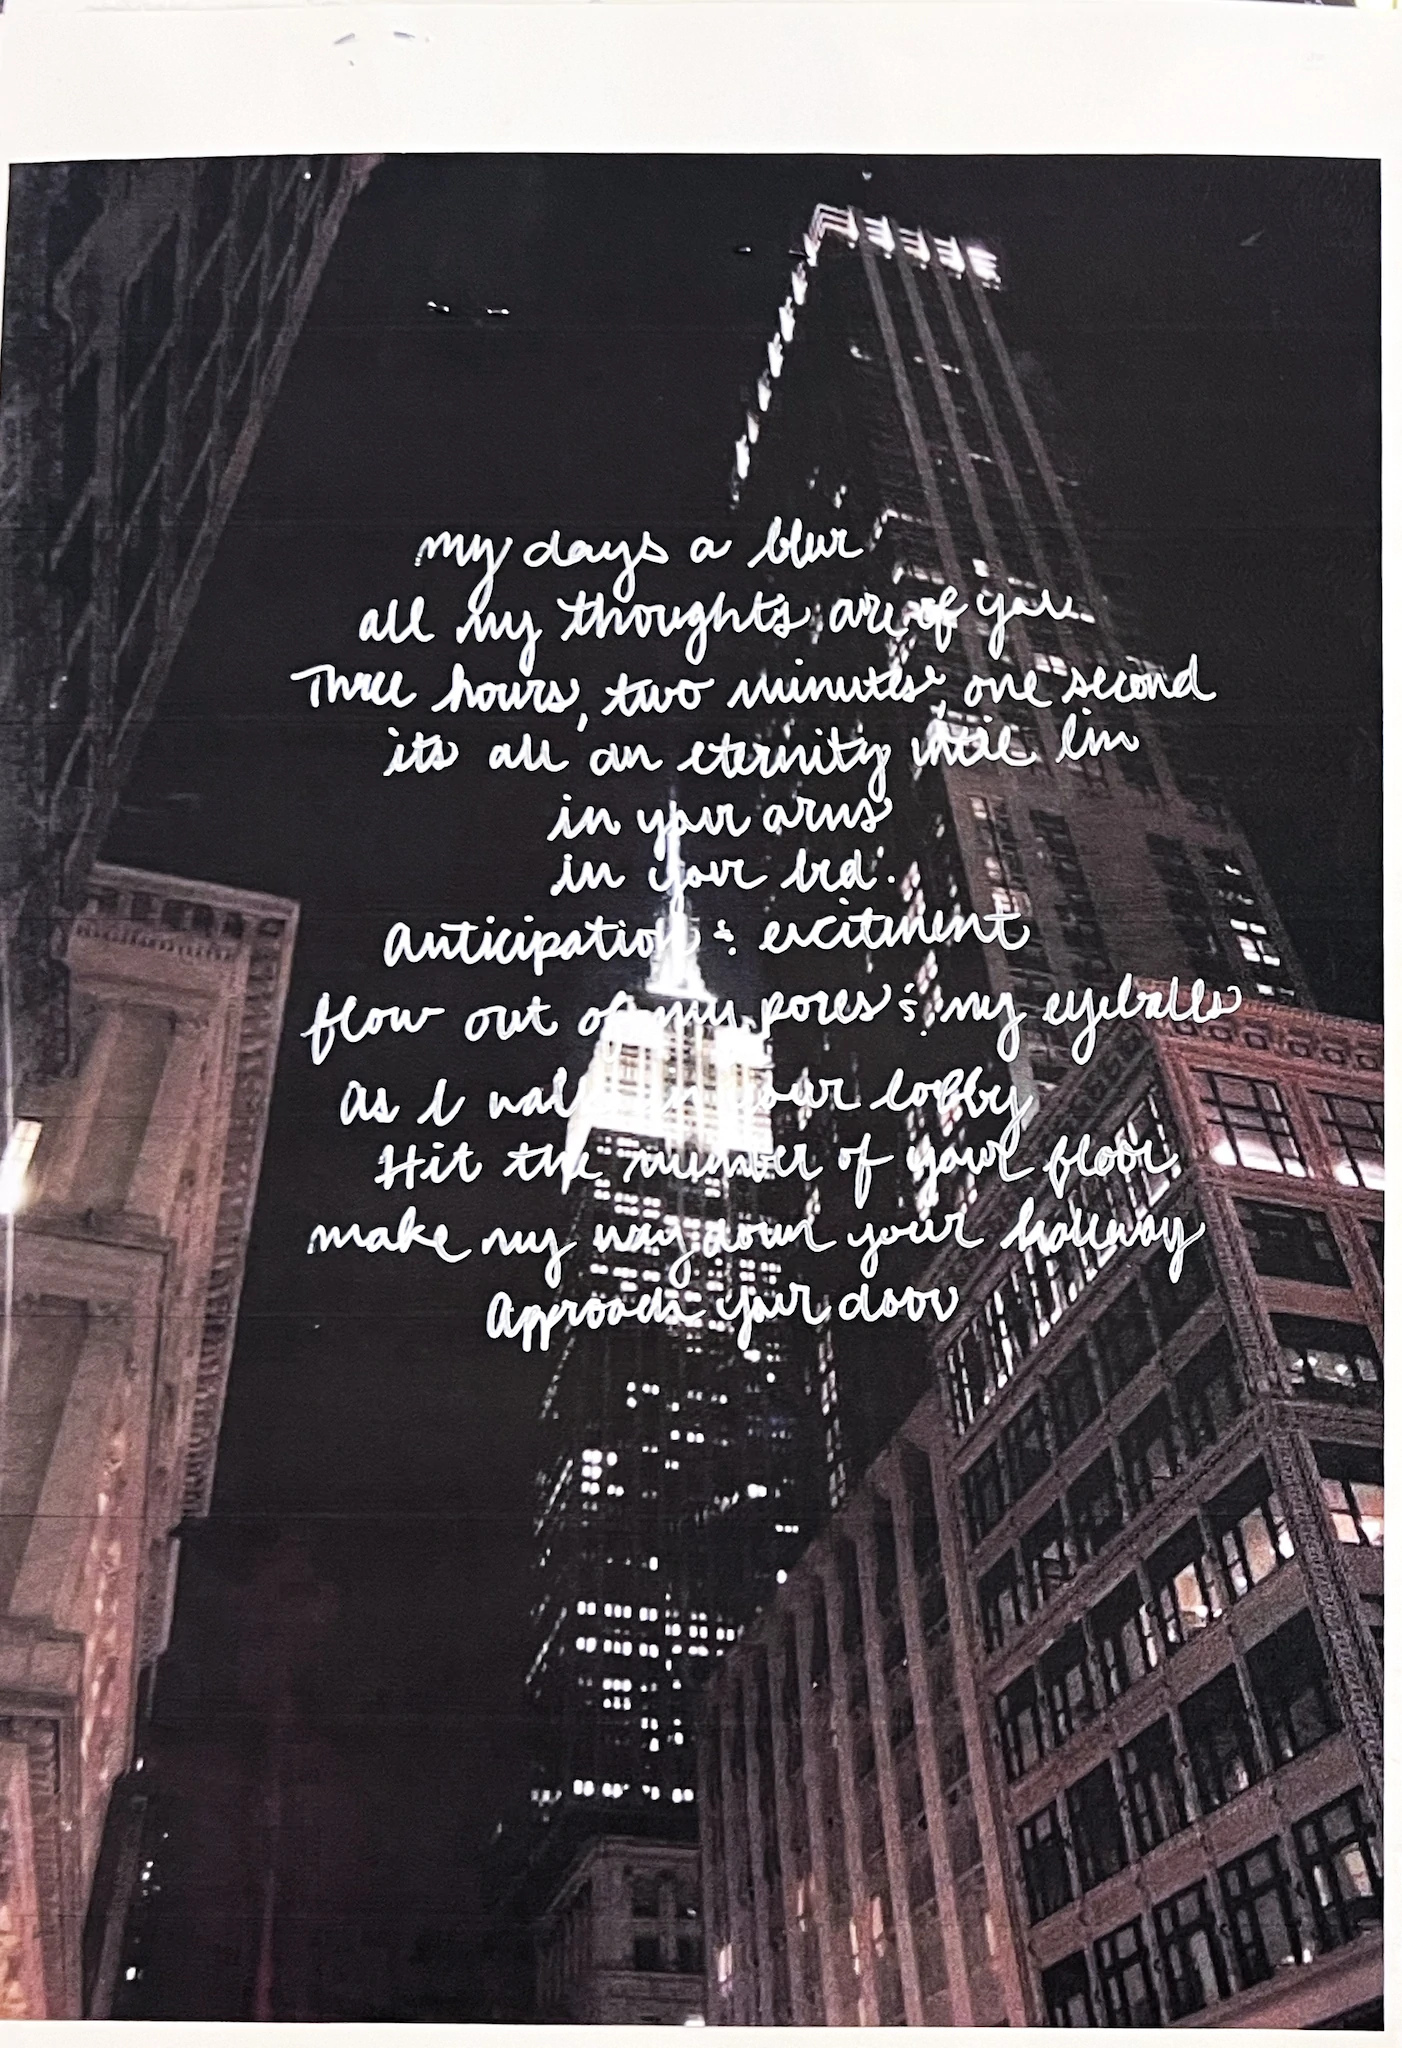 my days a blur
all my thoughts are of you
Three hours, two minutes, one second
its all an eternity until I'm
in your arms
in your bed.
Anticipation & excitment
flow out of my pores & my eyeballs
As I walk in your lobby
Hit the number of your floor
make my way down your hallway
Approach your door